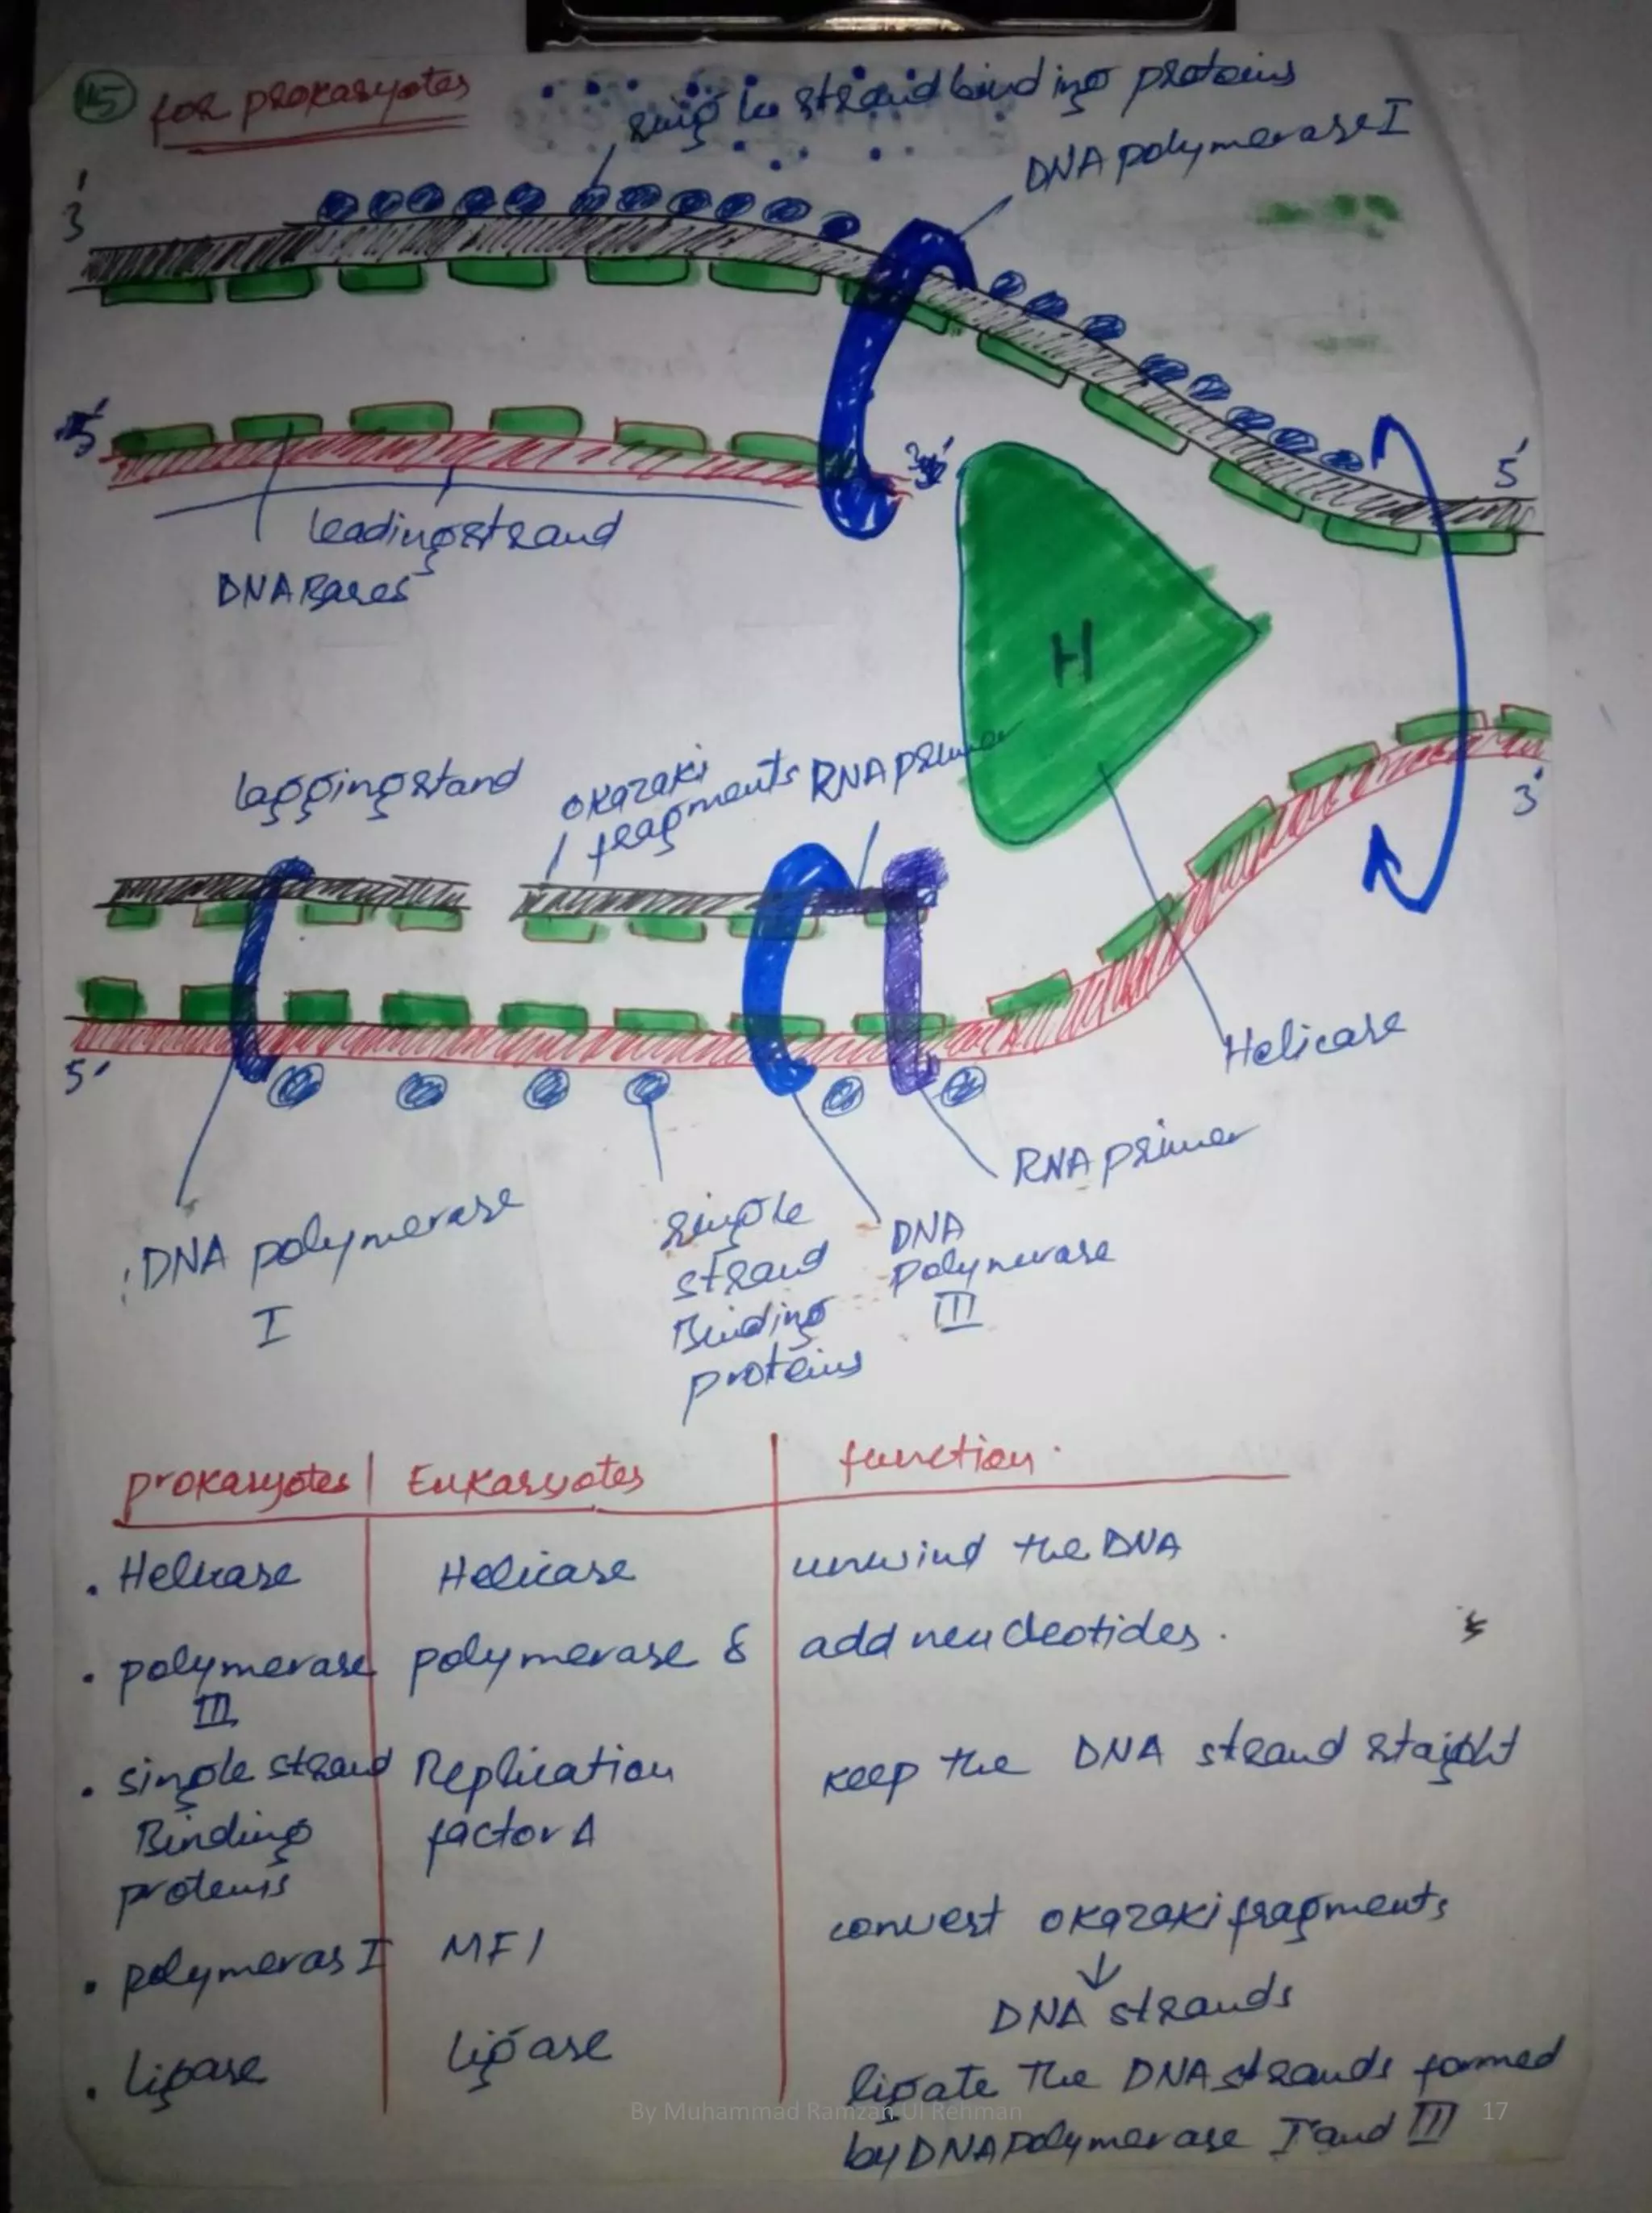 15 for prokaryotes
single strand binding proteins
DNA polymerase I
3'
5'
5'
3'
leading strand
DNA Bases
H
lagging stand
okazaki
fragments
RNA primer
3'
Helicase
5'
RNA primer
DNA polymerase
I
single
strand
Binding
proteins
DNA
polymerase
III
prokaryotes Eukaryotes function.
. Helicase Helicase unwind the DNA
. polymerase polymerase δ add neucleotides.
III
. single strand Replication keep the DNA strand staight
Binding factor A
proteins
. polymeras I MF1 convert okazaki fragments
↓
DNA strands
. ligase ligase ligate the DNA strands formed
by DNA polymerase I and III
By Muhammad Ramzan Ul Rehman 17